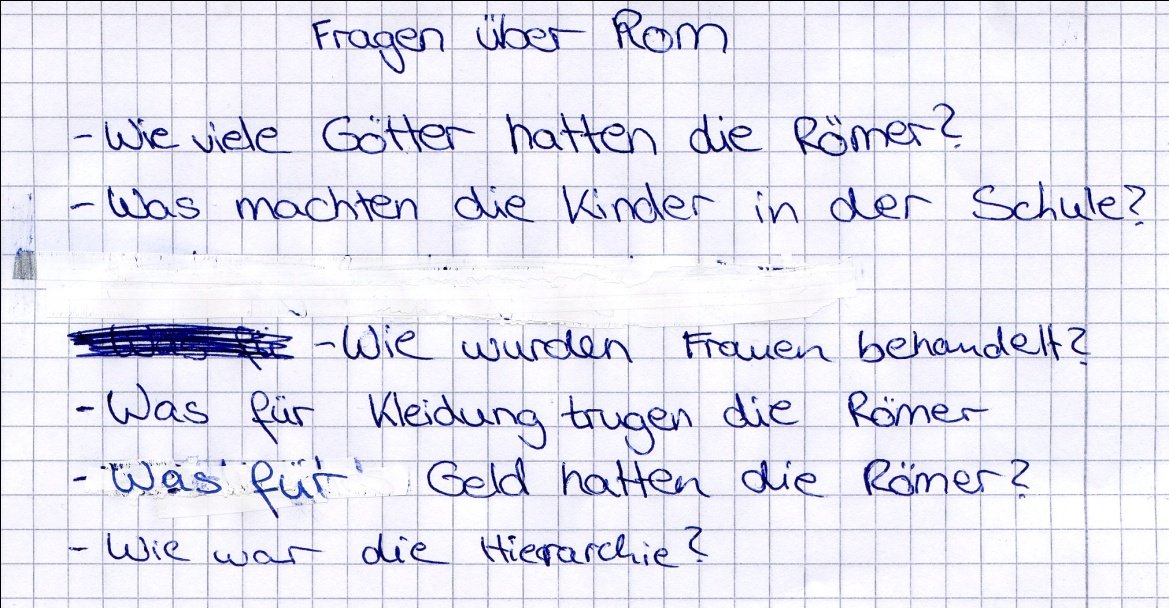 Fragen über Rom
- Wie viele Götter hatten die Römer?
- Was machten die Kinder in der Schule?
- Wie wurden Frauen behandelt?
- Was für Kleidung trugen die Römer
- Was für Geld hatten die Römer?
- Wie war die Hierarchie?